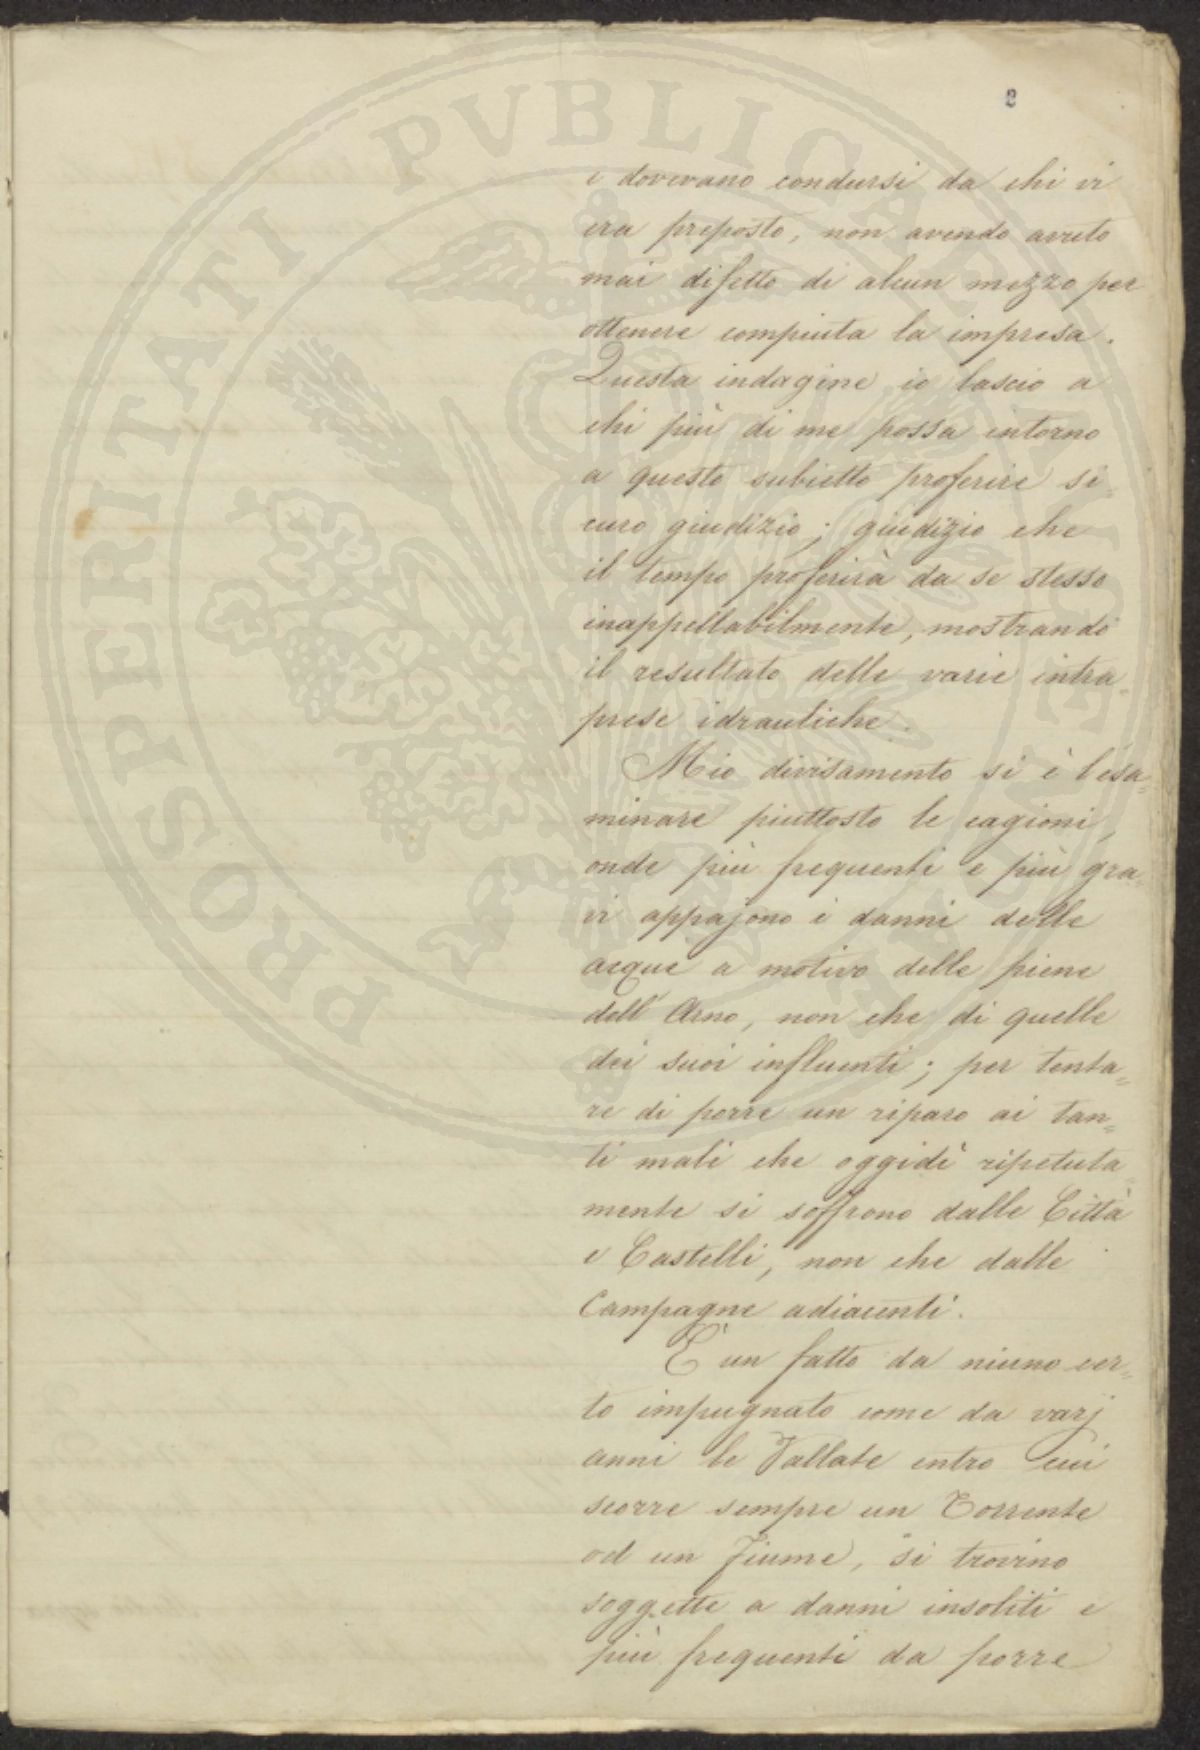 2
e dovevano condursi da chi vi
era preposto, non avendo avuto
mai difetto di alcun mezzo per
ottenere compiuta la impresa.
Questa indagine io lascio a
chi più di me possa intorno
a questo subietto proferire si=
curo giudizio; giudizio che
il tempo proferirà da se stesso
inappellabilmente, mostrando
il resultato delle varie intra=
prese idrauliche.
Mio divisamento si è l'esa=
minare piuttosto le cagioni,
onde più frequenti e più gra=
vi appajono i danni delle
acque a motivo delle piene
dell'Arno, non che di quelle
dei suoi influenti; per tenta=
re di porre un riparo ai tan=
ti mali che oggidì ripetuta=
mente si soffrono dalle Città
e Castelli, non che dalle
Campagne adiacenti.
È un fatto da niuno cer=
to impugnato come da varj
anni le Vallate entro cui
scorre sempre un Torrente
od un Fiume, si trovino
soggette a danni insoliti e
più frequenti da porre
PROSPERITATI PVBLICAE AVGENDAE